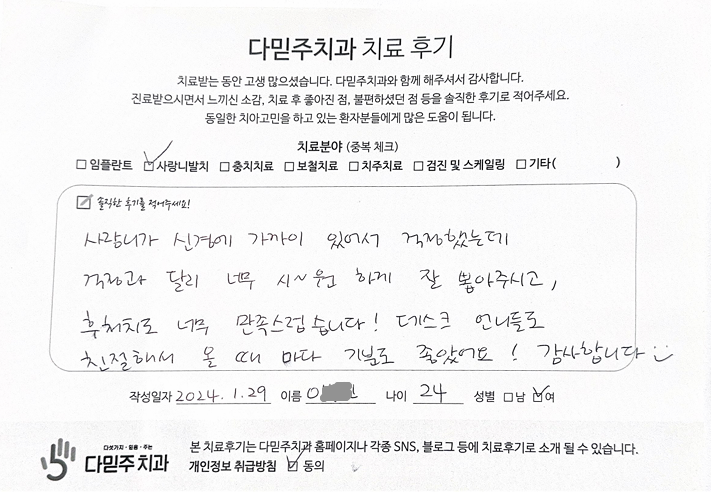 다믿주치과 치료 후기
치료받는 동안 고생 많으셨습니다. 다믿주치과와 함께 해주셔서 감사합니다.
진료받으시면서 느끼신 소감, 치료 후 좋아진 점, 불편하셨던 점 등을 솔직한 후기로 적어주세요.
동일한 치아고민을 하고 있는 환자분들에게 많은 도움이 됩니다.
치료분야 (중복 체크)
□ 임플란트 ☑ 사랑니발치 □ 충치치료 □ 보철치료 □ 치주치료 □ 검진 및 스케일링 □ 기타( )
솔직한 후기를 적어주세요!
사랑니가 신경에 가까이 있어서 걱정했는데
걱정과 달리 너무 시~원 하게 잘 뽑아주시고,
후처치도 너무 만족스럽습니다! 데스크 언니들도
친절해서 올 때 마다 기분도 좋았어요! 감사합니다
작성일자 2024.1.29 이름 나이 24 성별 □남 ☑여
다섯가지·믿음·주는
다믿주치과
본 치료후기는 다믿주치과 홈페이지나 각종 SNS, 블로그 등에 치료후기로 소개 될 수 있습니다.
개인정보 취급방침 ☑ 동의